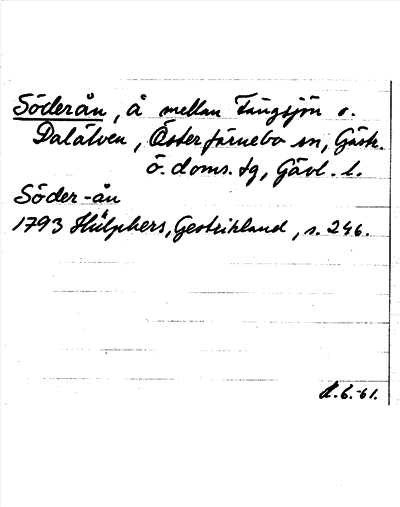 Söderån, å mellan Tängsjön o.
Dalälven, Österfärnebo sn, Gästr.
ö. doms. tg, Gävl. l.
Söder-ån
1793 Hülphers, Gestrikland, s. 246.
d. 6. -61.